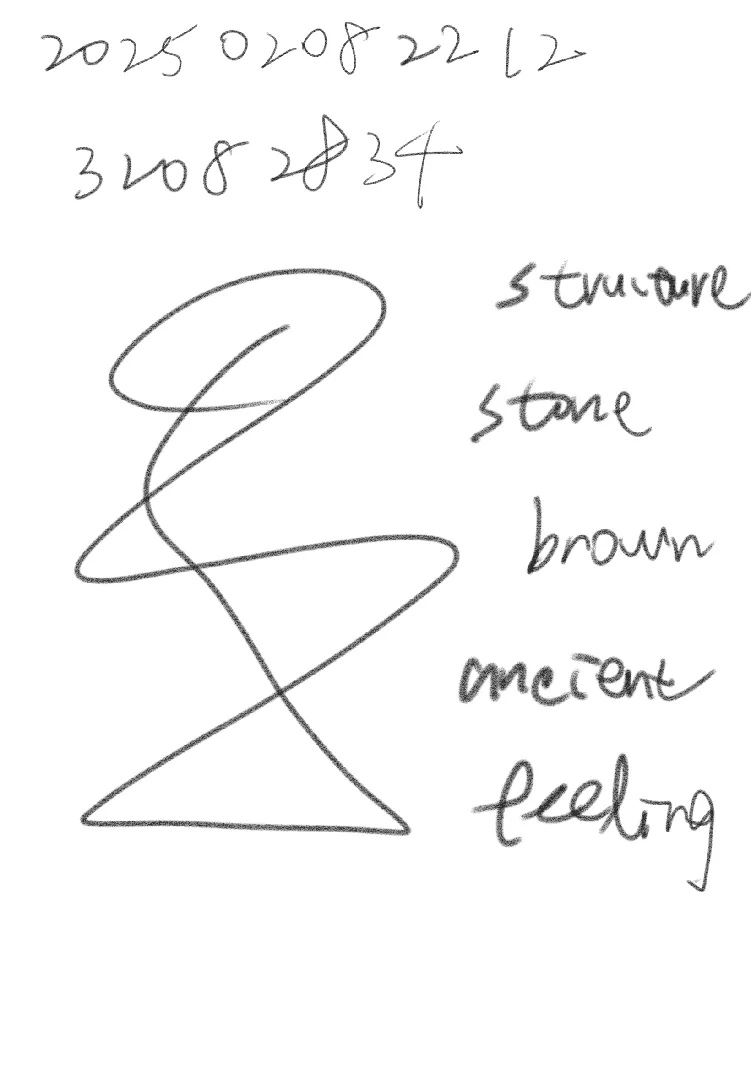 20250208 2212
32082834
structure
stone
brown
ancient
feeling